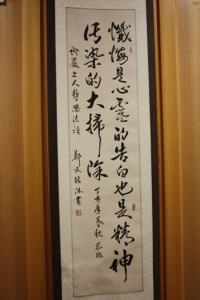 懺悔是心靈的告白也是精神
污染的大掃除
丁亥年暮秋恭錄
證嚴上人靜思法語